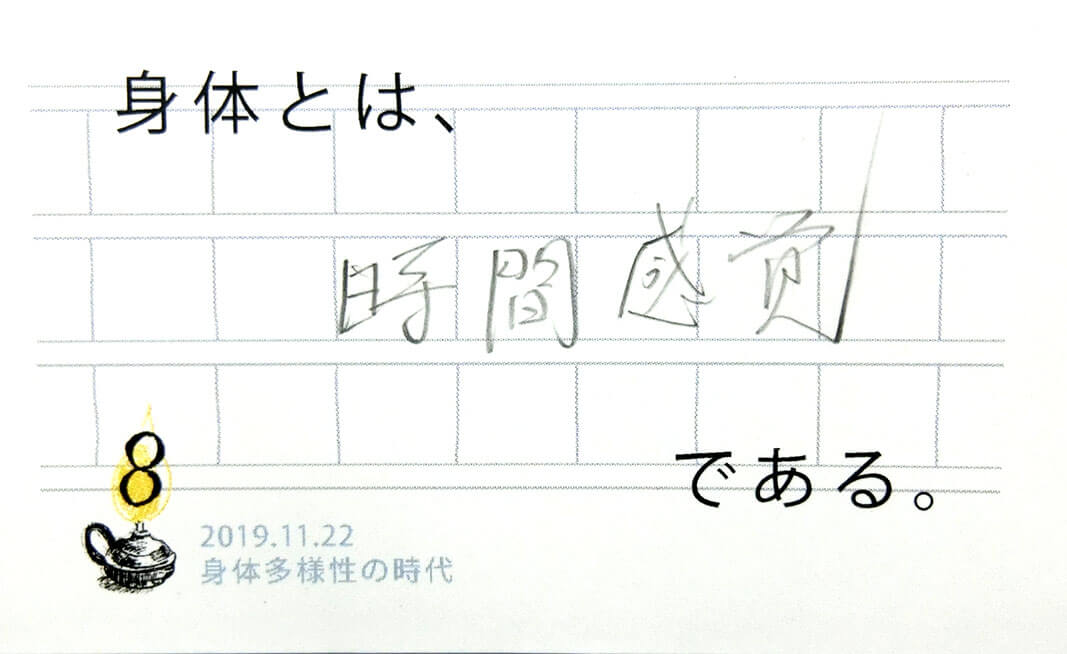 身体とは、
時間感覚
である。
8
2019.11.22
身体多様性の時代